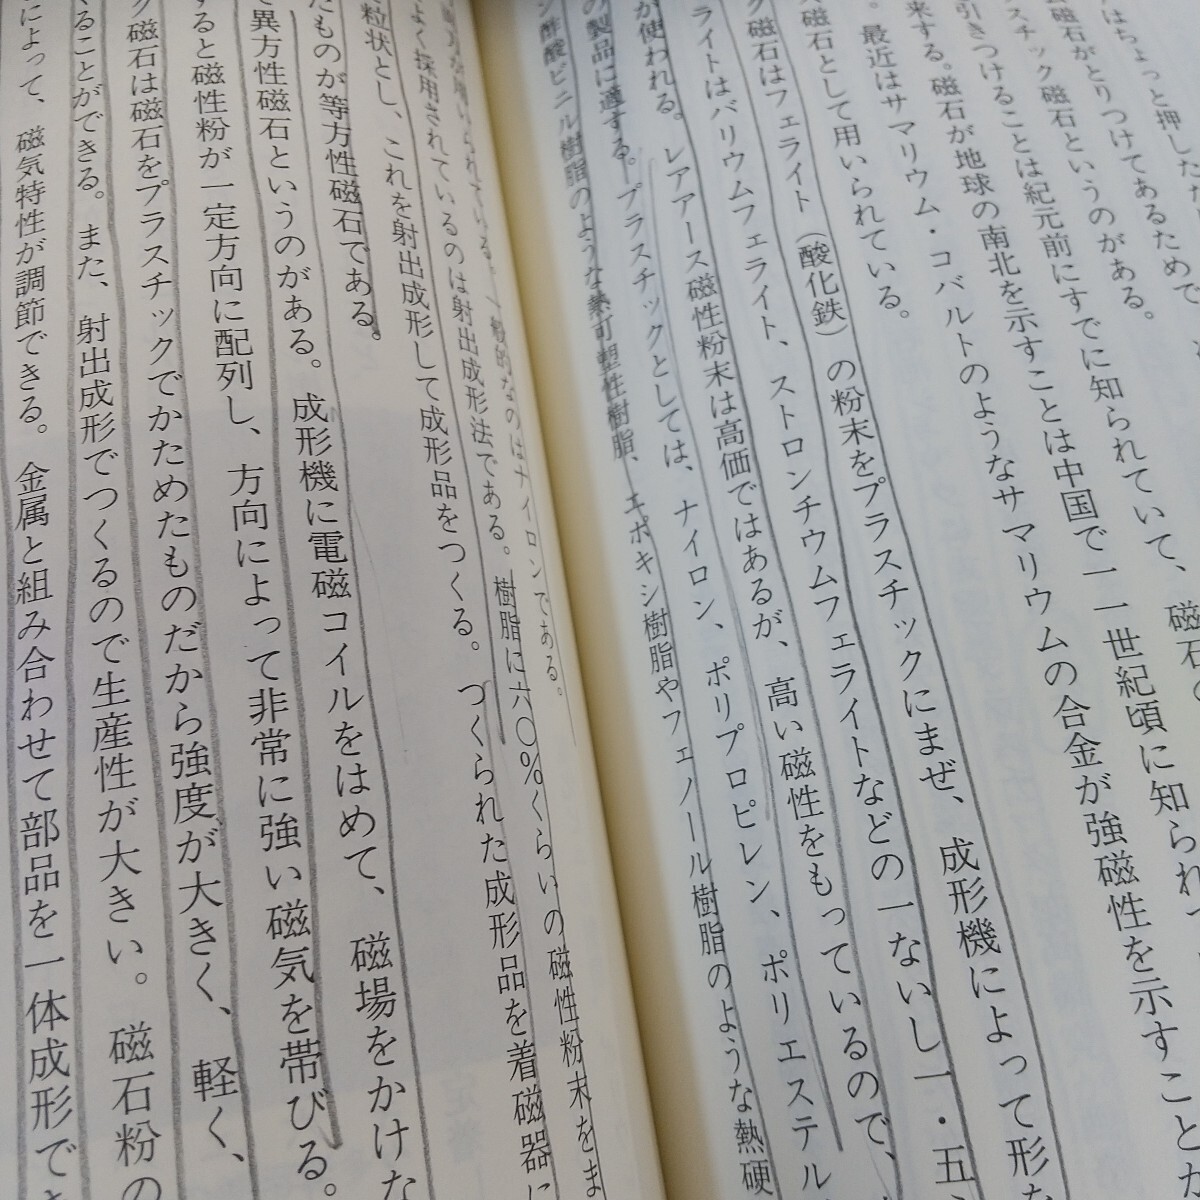 はちょっと押しただ
磁石がとりつけてあるためで
スチック磁石というのがある。
引きつけることは紀元前にすでに知られていて、磁石の
来する。磁石が地球の南北を示すことは中国で一一世紀頃に知られて
。最近はサマリウム・コバルトのようなサマリウムの合金が強磁性を示すことが
磁石として用いられている。
ク磁石はフェライト（酸化鉄）の粉末をプラスチックにまぜ、成形機によって形を
ライトはバリウムフェライト、ストロンチウムフェライトなどの一ないし一・五
が使われる。レアアース磁性粉末は高価ではあるが、高い磁性をもっているので、
の製品に適する。プラスチックとしては、ナイロン、ポリプロピレン、ポリエステル
ン酢酸ビニル樹脂のような熱可塑性樹脂、エポキシ樹脂やフェノール樹脂のような熱硬
られている。一般的なのはナイロンである。
よく採用されているのは射出成形法である。樹脂に六〇％くらいの磁性粉末をま
て粒状とし、これを射出成形して成形品をつくる。つくられた成形品を着磁器に
たものが等方性磁石である。
で異方性磁石というのがある。成形機に電磁コイルをはめて、磁場をかけな
すると磁性粉が一定方向に配列し、方向によって非常に強い磁気を帯びる。
ク磁石は磁石をプラスチックでかためたものだから強度が大きく、軽く、
くることができる。また、射出成形でつくるので生産性が大きい。磁石粉の
によって、磁気特性が調節できる。金属と組み合わせて部品を一体成形でき